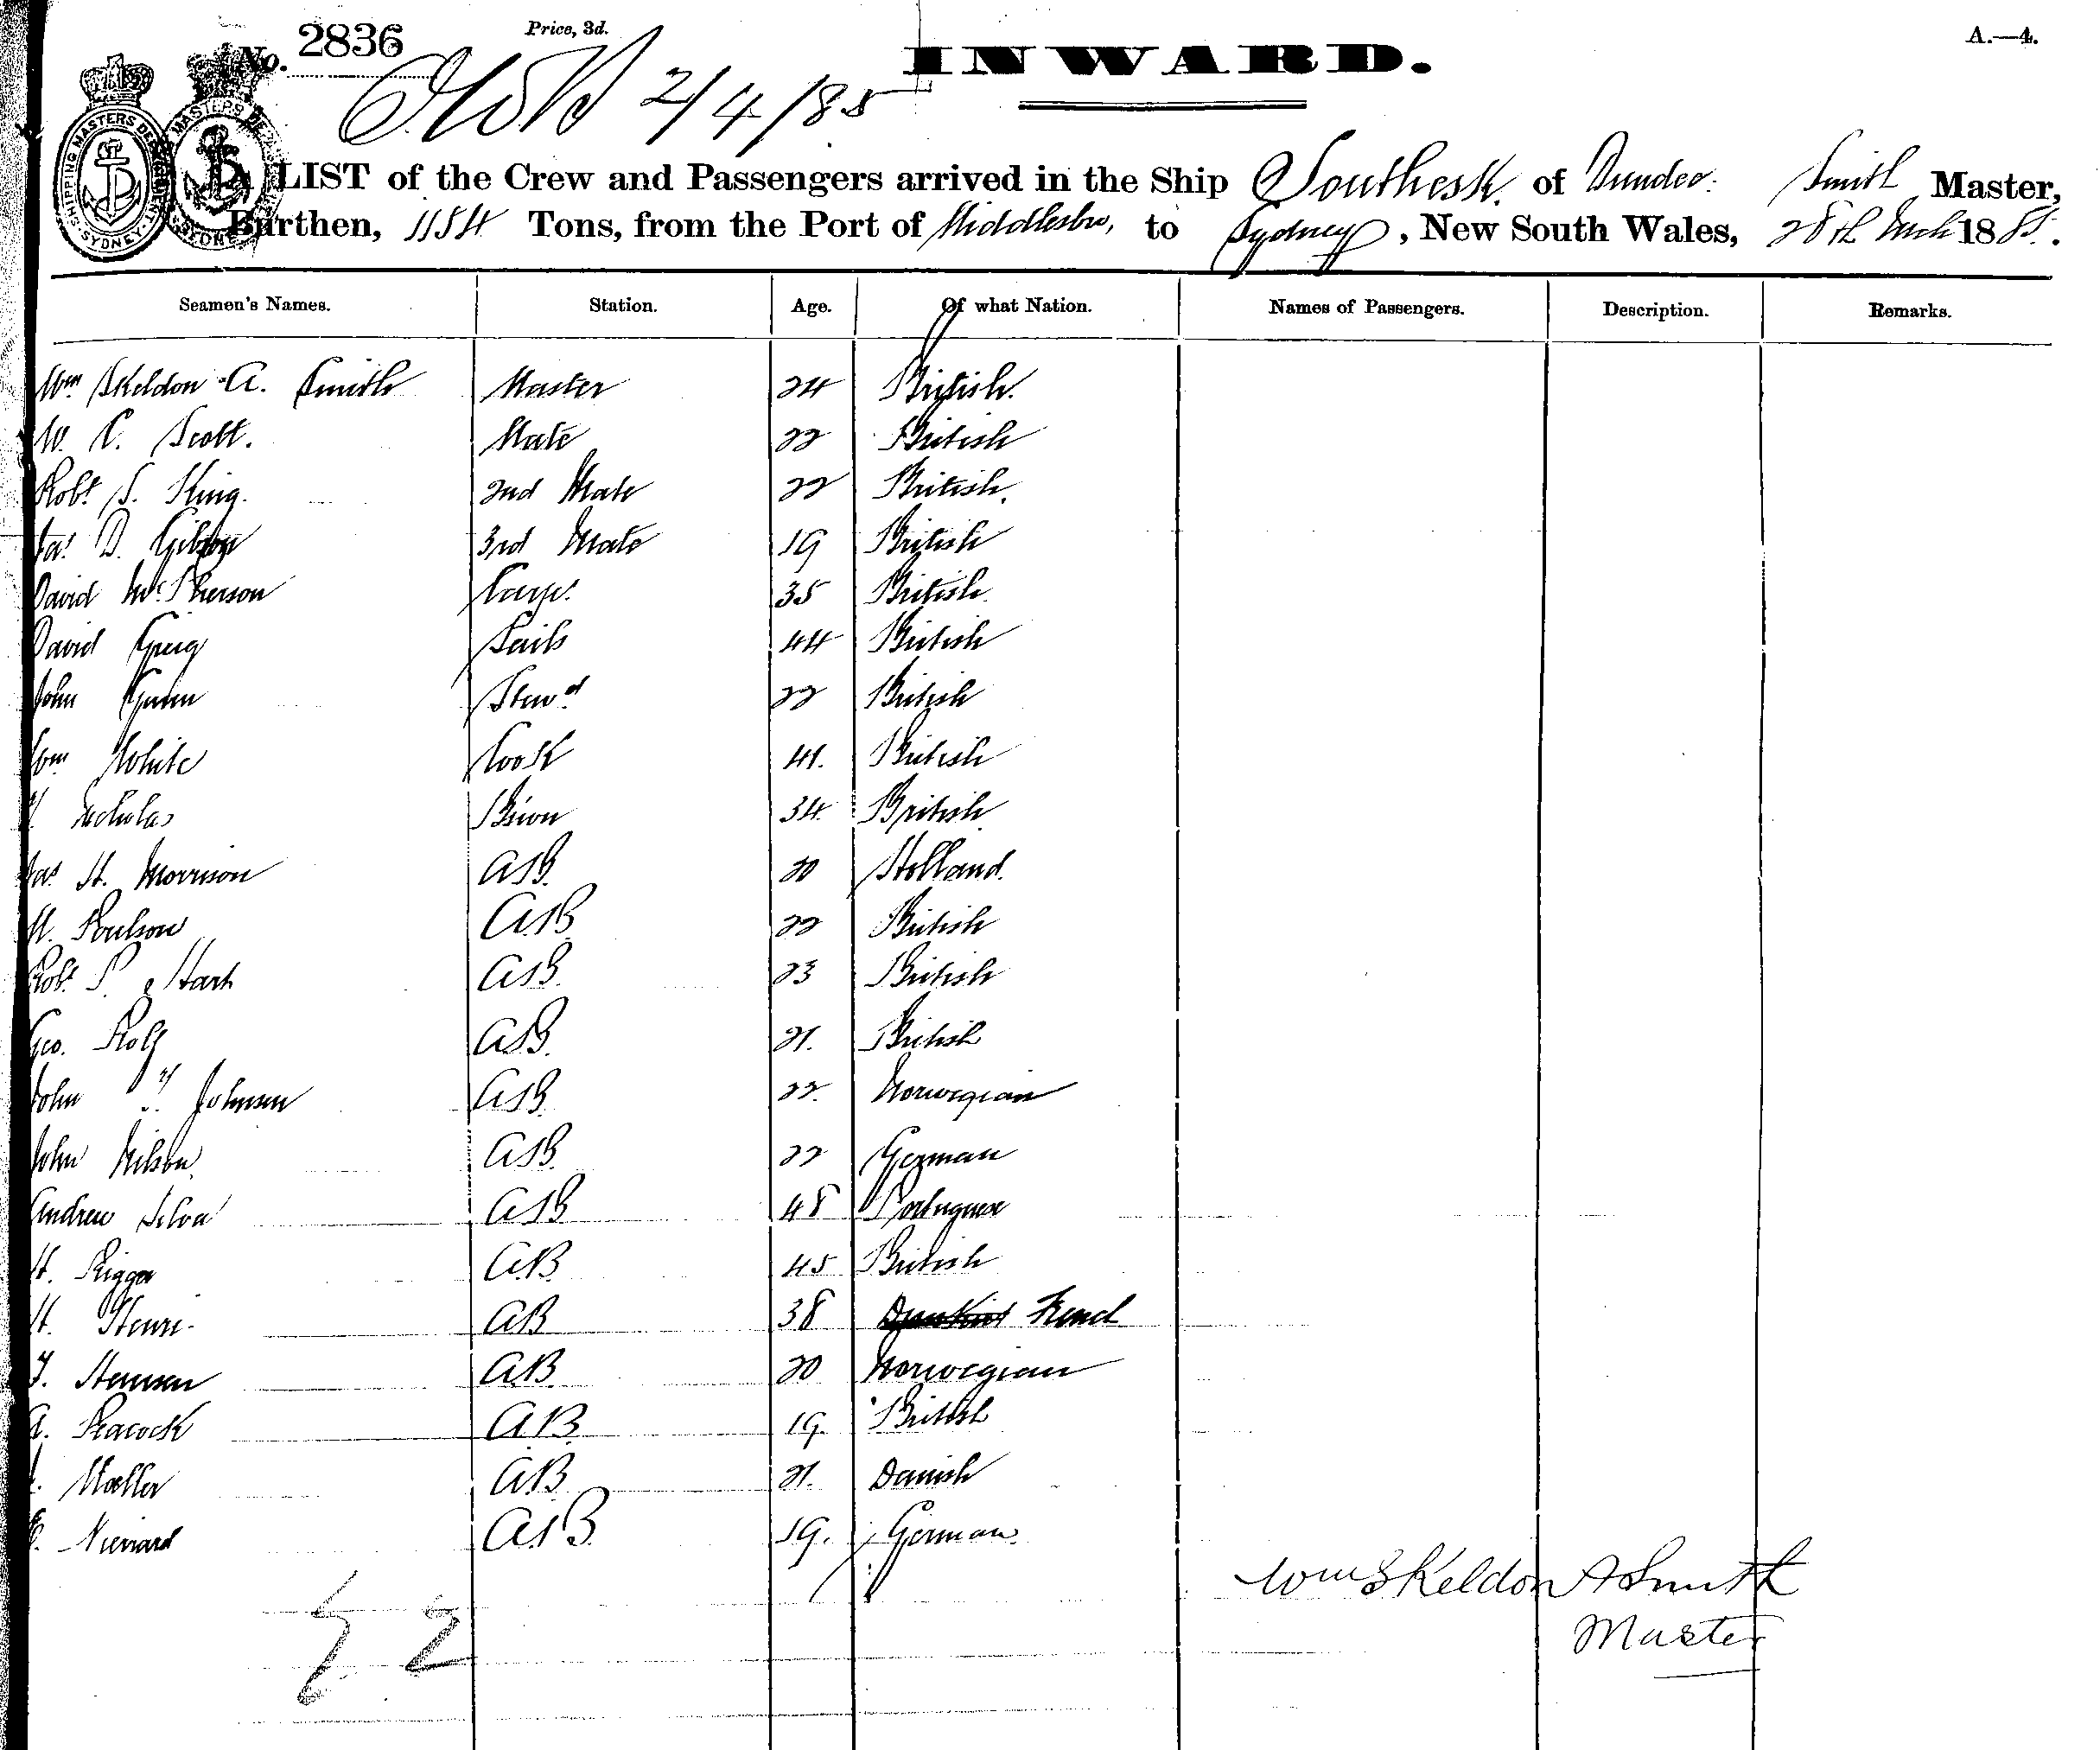 No. 2836
Price, 3d.
A.—4.
INWARD.
2/4/85
SHIPPING MASTERS DEPARTMENT SYDNEY
LIST of the Crew and Passengers arrived in the Ship Southesk. of Dundee. Smith Master,
Burthen, 1154 Tons, from the Port of Middlesbro, to Sydney, New South Wales, 28th Mch 1885.
Seamen's Names. Station. Age. Of what Nation. Names of Passengers. Description. Remarks.
Wm Skeldon A. Smith Master 24 British.
W. C. Scott. Mate 22 British
Robt S. King. 2nd Mate 22 British.
Jas. D. Gibson 3rd Mate 19 British
David McPherson Carp. 35 British.
David Greig Sails 44 British
John Gunn Stewd 22 British
Wm White Cook 41. British
Nicholas Bosun 34 British
Jas H. Morrison A.B. 20 Holland.
Poulson A.B. 22 British
Robt S. Hart A.B. 23 British
Geo. A.B. 21. British
John Johnsen A.B. 22. Norwegian
John Nilson A.B. 22 German
Andrew Silva A.B. 48 Portuguese
H. Rigga A.B. 45 British
H. Henri A.B. 38 French
Hemsen A.B. 20 Norwegian
A. Peacock A.B. 19. British
Moller A.B. 21. Danish
Nieviard A.B. 19. German
Wm Skeldon A Smith
Master
22